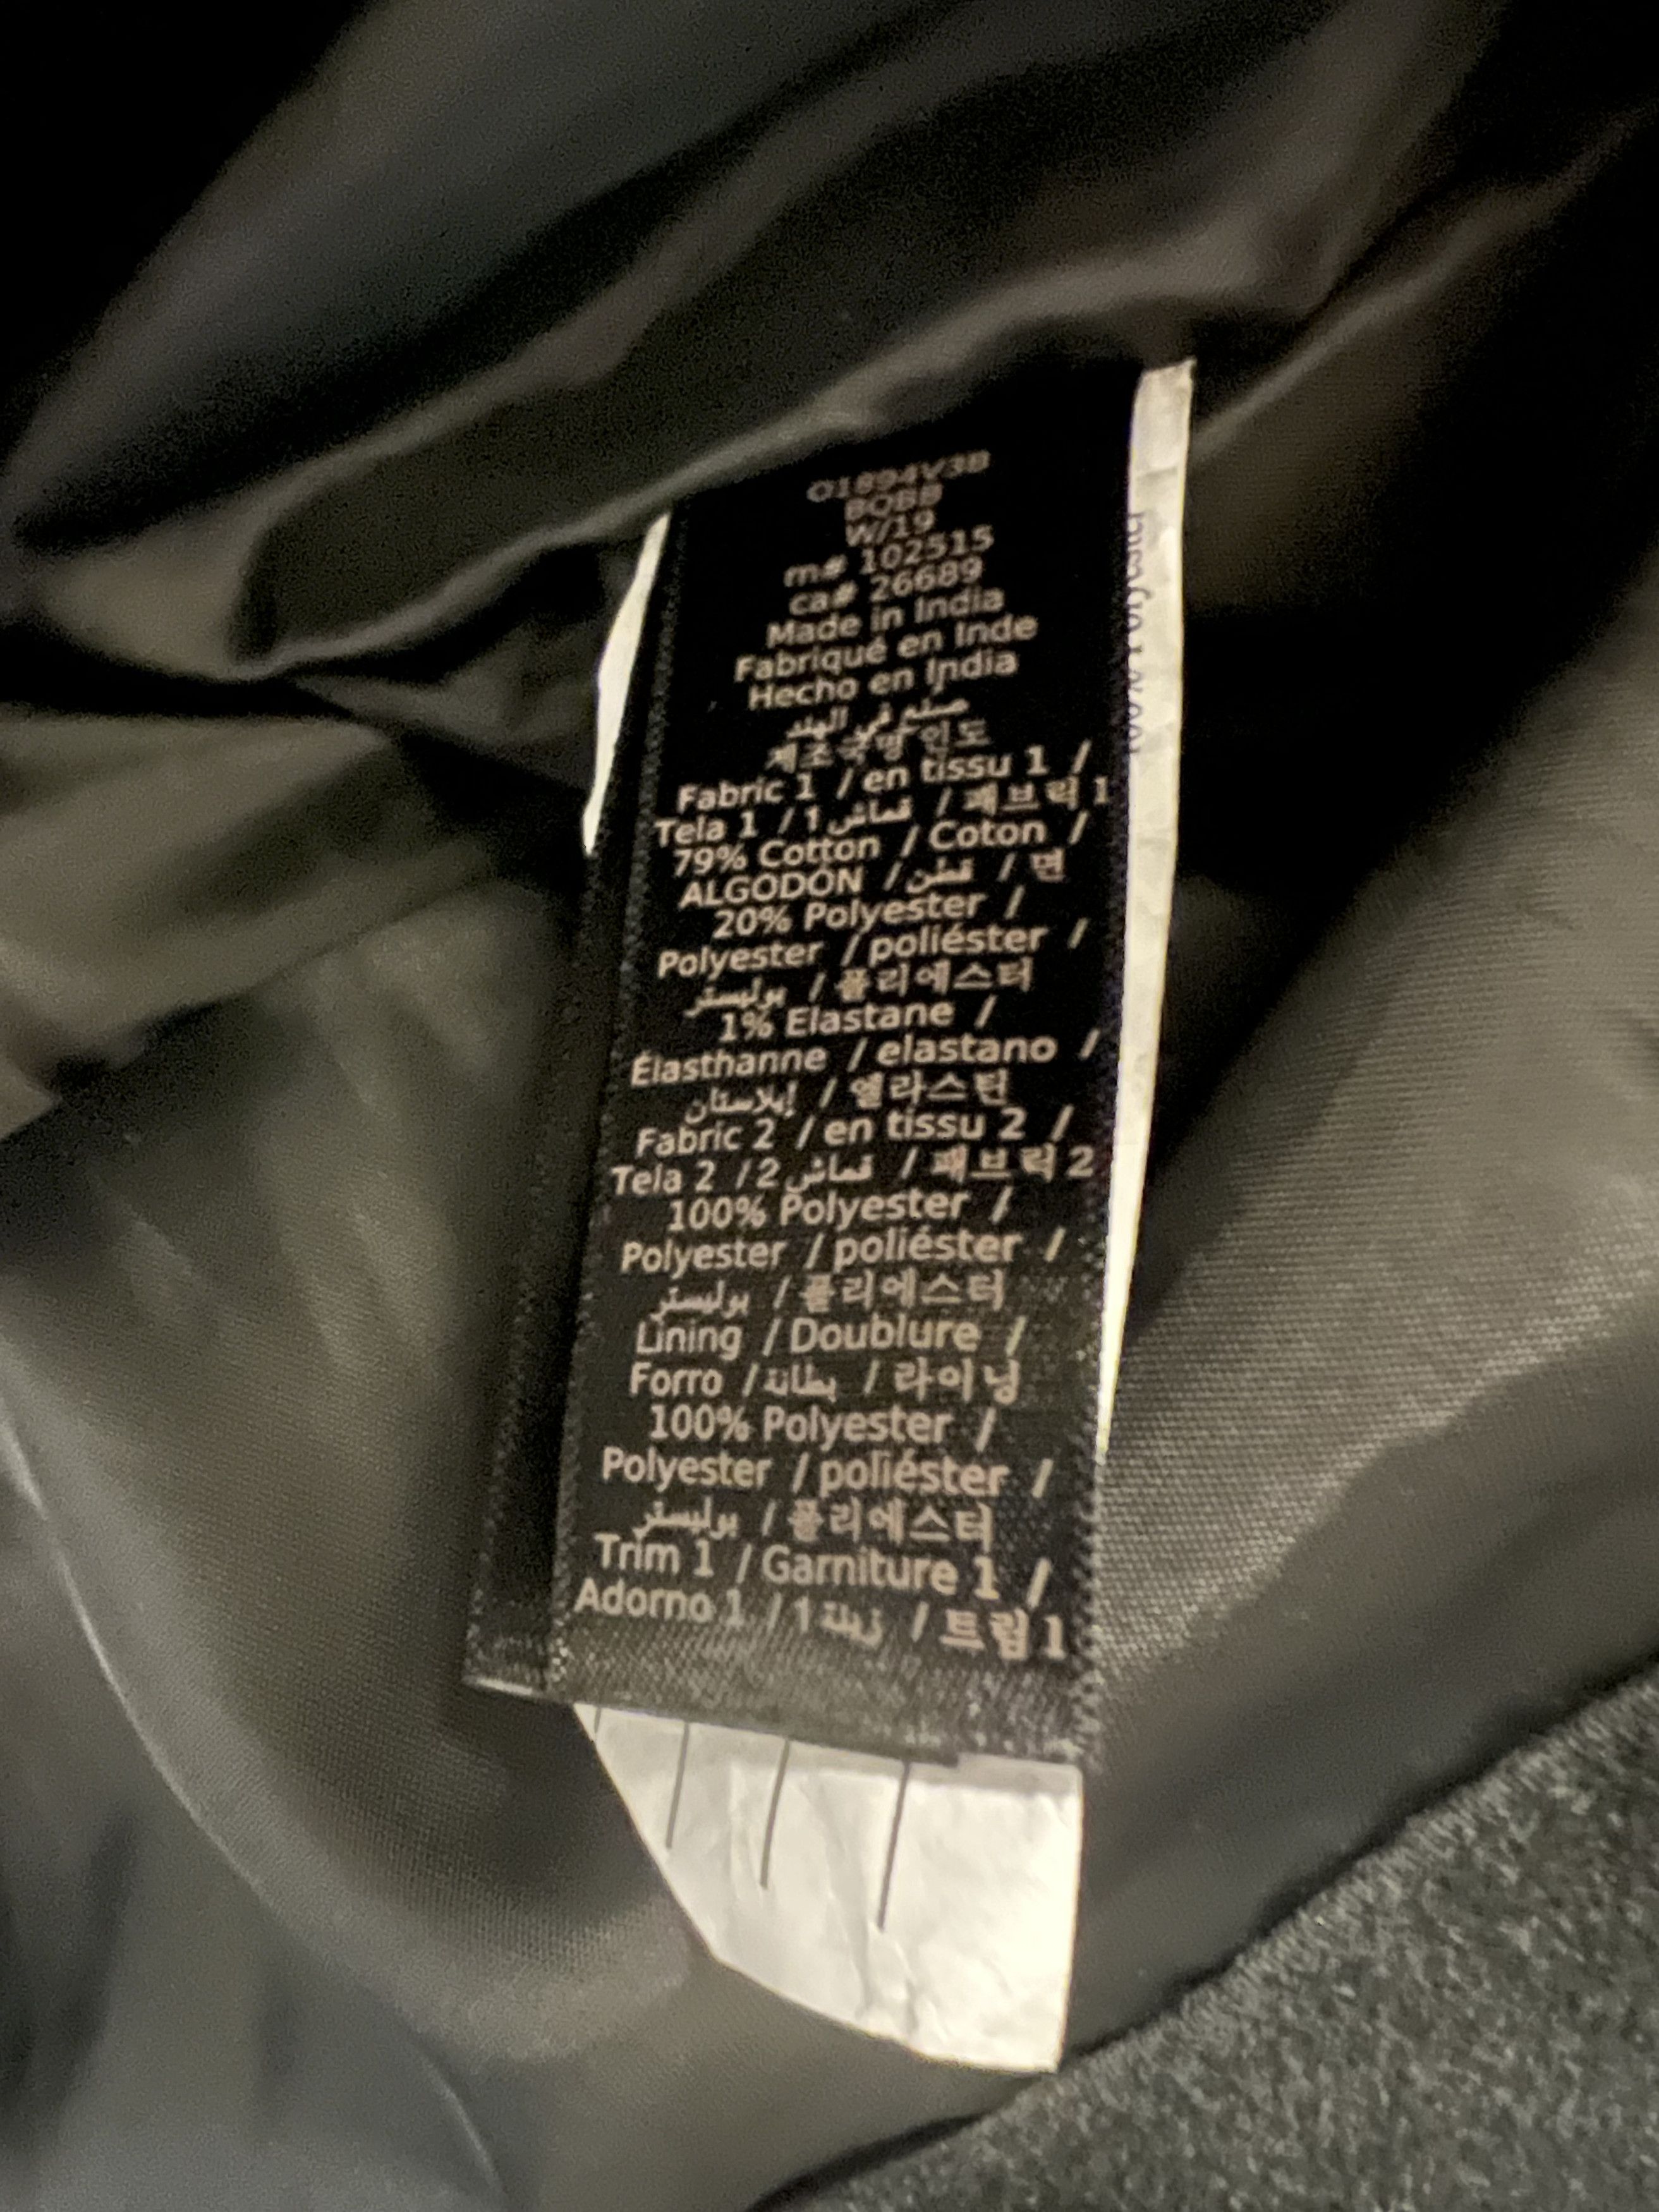 O1894V3B
BOBB
W/19
m# 102515
ca# 26689
Made in India
Fabriqué en Inde
Hecho en India
صنع في الهند
제조국명 인도
Fabric 1 / en tissu 1 /
Tela 1 / 1 قماش / 패브릭 1
79% Cotton / Coton /
ALGODÓN / قطن / 면
20% Polyester /
Polyester / poliéster /
بوليستر / 폴리에스터
1% Elastane /
Élasthanne / elastano /
إيلاستان / 엘라스틴
Fabric 2 / en tissu 2 /
Tela 2 / 2 قماش / 패브릭 2
100% Polyester /
Polyester / poliéster /
بوليستر / 폴리에스터
Lining / Doublure /
Forro / بطانة / 라이닝
100% Polyester /
Polyester / poliéster /
بوليستر / 폴리에스터
Trim 1 / Garniture 1 /
Adorno 1 / 1 زينة / 트림 1
100% Polyester